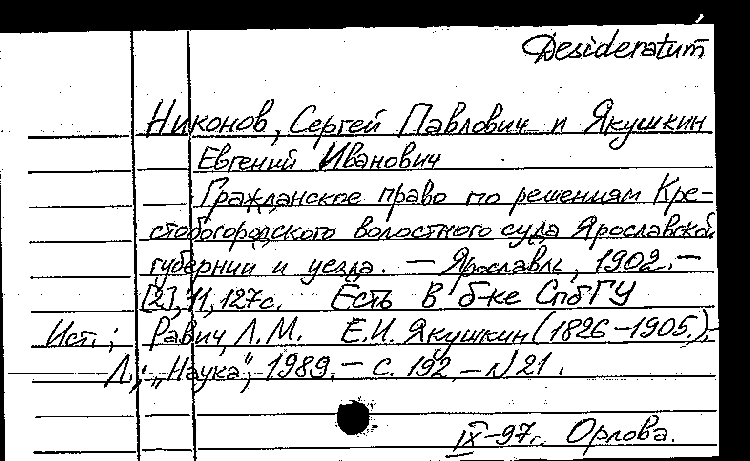 Desideratum
Никонов, Сергей Павлович и Якушкин
Евгений Иванович
Гражданское право по решениям Кре-
стобогородского волостного суда Ярославской
губернии и уезда. — Ярославль, 1902. —
[2], 11, 127с. Есть в б-ке СпбГУ
Ист.: Равич, Л.М. Е.И. Якушкин (1826-1905).-
Л.: "Наука", 1989. — с. 192. — N 21.
IX-97г. Орлова.